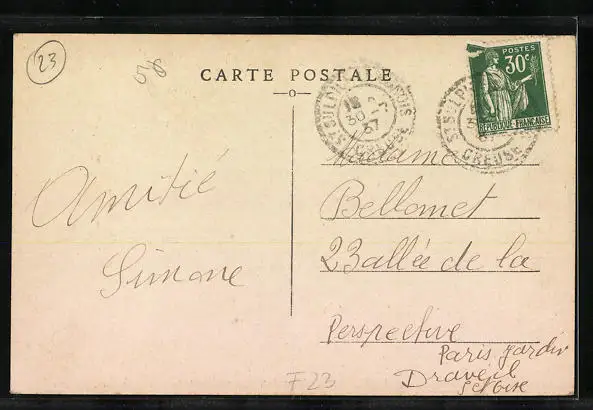 23
CARTE POSTALE
POSTES
30c
RÉPUBLIQUE FRANÇAISE
ST SULPICE
30
37
CREUSE
ST SULP
CREUSE
Amitié
Simone
Madame
Bellomet
23 allée de la
Perspective
Paris Jardin
Draveil
S et Oise
F23